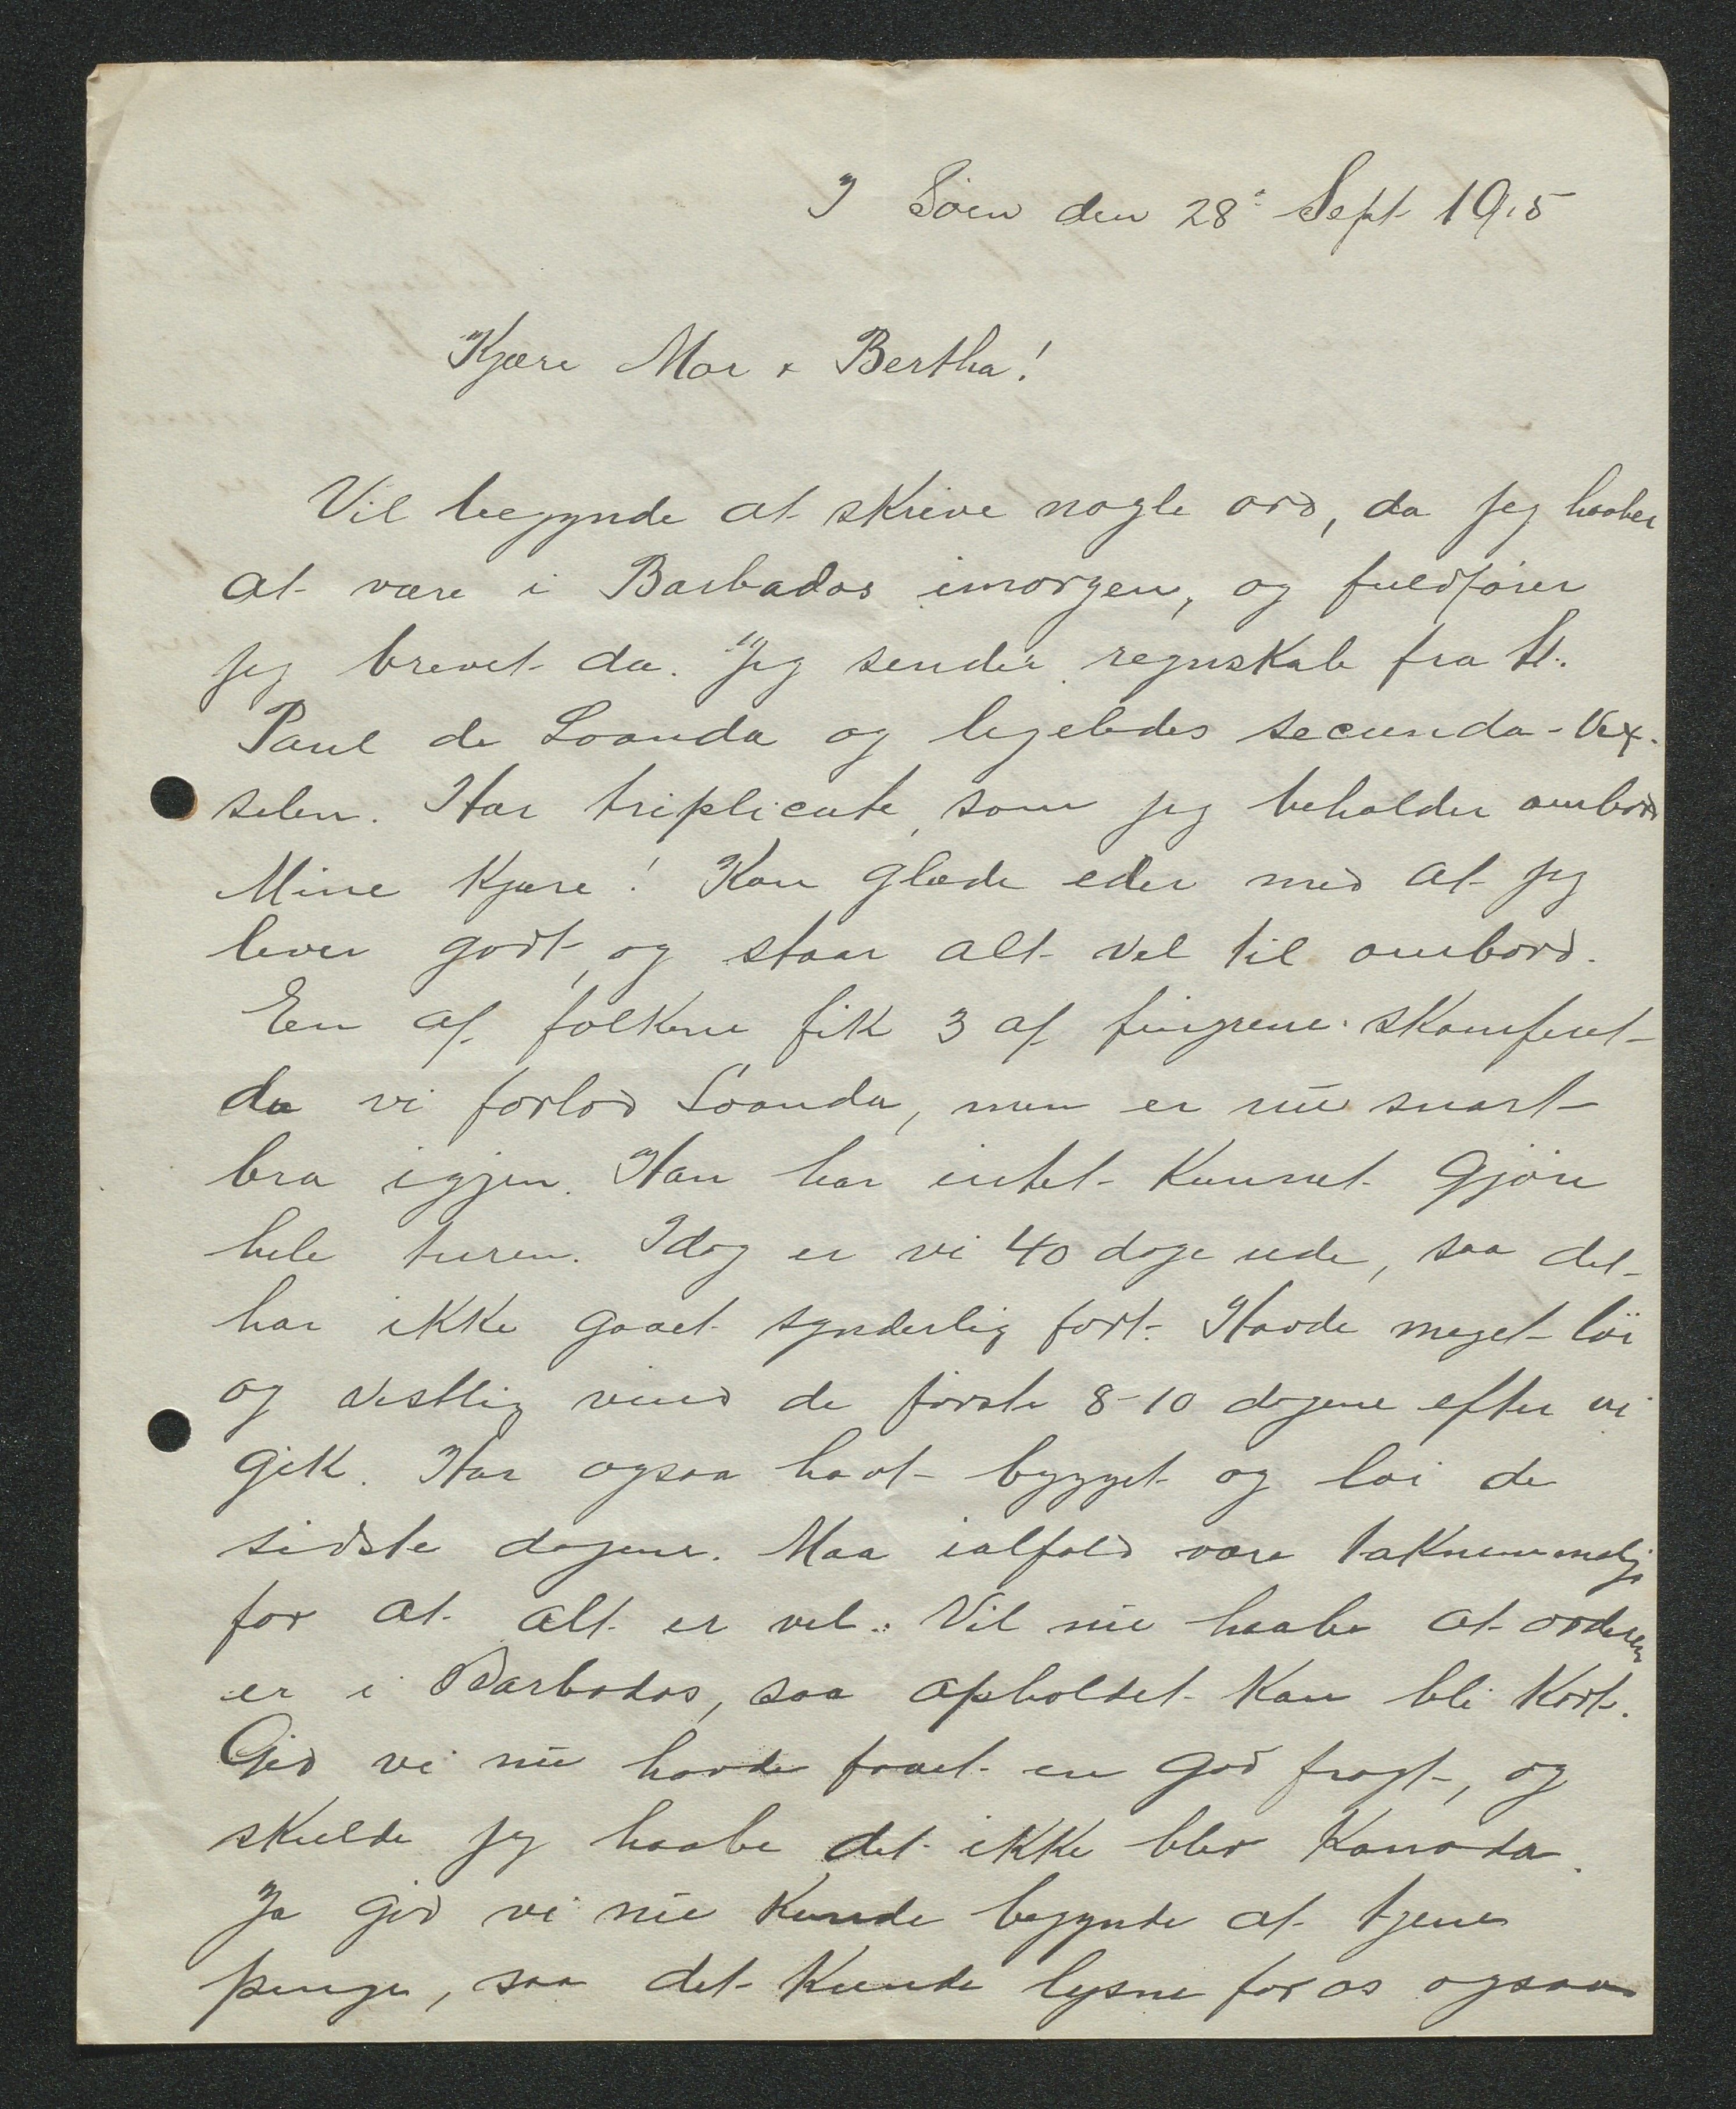 I Søen den 28: Sept 1915
Kjære Mor & Bertha!
Vil begynde at skrive nogle ord, da jeg haaber
at være i Barbados imorgen, og fuldfører
jeg brevet da. Jeg sender regnskab fra St.
Paul de Loanda og ligeledes secunda-Vex-
selen. Har triplicate, som jeg beholder ombord
Mine Kjære! Kan glæde eder med at jeg
lever godt, og staar alt vel til ombord.
En af folkene fik 3 af fingrene skamferet
da vi forlod Loanda, men er nu snart
bra igjen. Han har intet kunnet gjøre
hele turen. Idag er vi 40 dage ude, saa det
har ikke gaaet synderlig fort. Havde meget løi
og vestlig vind de første 8-10 dagene efter vi
gik. Har ogsaa havt bygget og løi de
sidste dagene. Maa ialfald være taknemmelig
for at alt er vel. Vil nu haabe at orderen
er i Barbados, saa opholdet kan bli kort.
Gid vi nu havde faaet en god fragt, og
skulde jeg haabe det ikke blev Kanada.
Ja gid vi nu kunde begynde at tjene
penge, saa det kunde lysne for os ogsaa